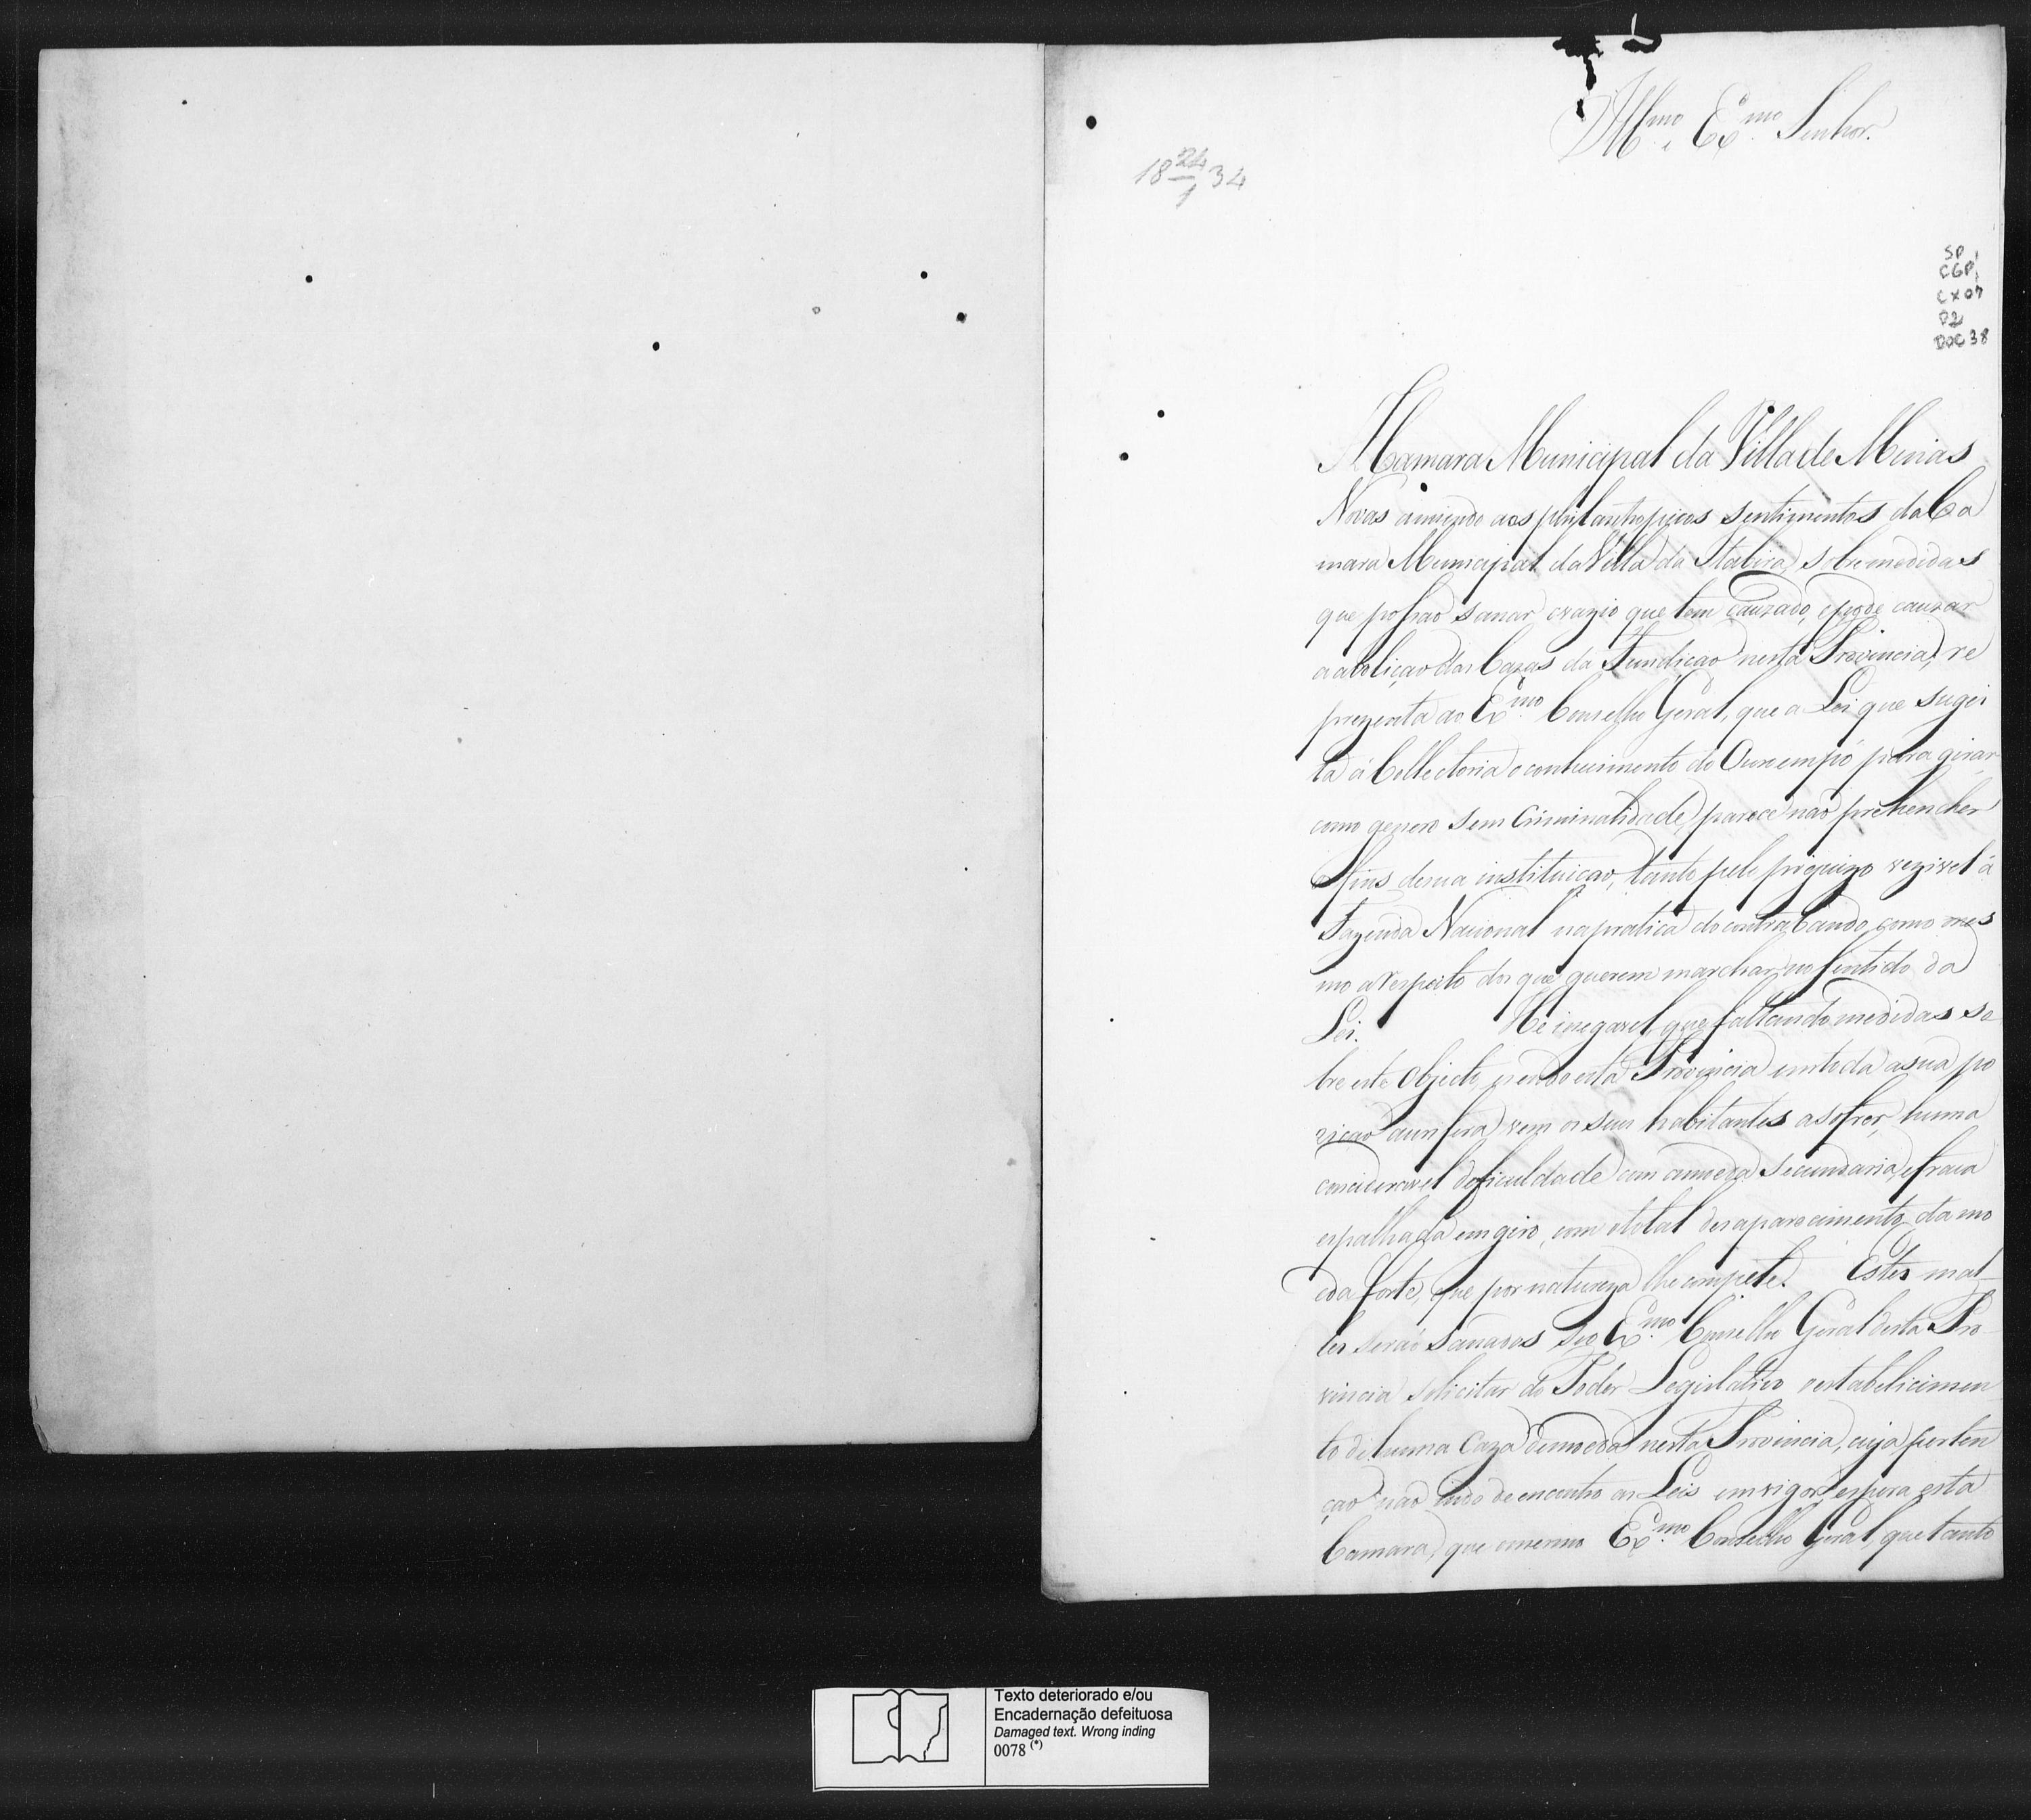 Ill.mo e Ex.mo Senhor.
18 24/1 34
SP,
CGP,
CX07
P2
DOC 38
A Camara Municipal da Villa de Minas
Novas annuindo aos philanthropicos sentimentos da Ca
mara Municipal da Villa da Itabira, sobre medidas
que possão sanar o vazio que tem cauzado, e pode cauzar
a abolição das Cazas da Fundição nesta Provincia, re
prezenta ao Ex.mo Conselho Geral, que a Lei que sugei
ta á Collectoria o conhecimento do Ouro em pó para girar
como genero sem Criminalidade, parece não prehencher
os fins de sua instituição, tanto pelo prejuizo vezivel á
Fazenda Nacional na pratica do contrabando, como mes
mo a respeito dos que querem marchar no sentido da
Lei. He inegavel, que faltando medidas so
bre este Objecto, sendo esta Provincia em toda a sua po
zição aurifera, vem os seus habitantes a sofrer, huma
concideravel deficuldade com a moeda secundaria, e fraca
espalhada em giro, com o total desaparecimento da mo
eda forte, que por natureza lhe compete. Estes mal
les serão sanados se o Ex.mo Conselho Geral desta Pro
vincia solicitar do Poder Legislativo o estabelicimen
to de huma Caza de moeda nesta Provincia, cuja perten
ção não indo de encontro as Leis em vigor, espera esta
Camara, que o mesmo Ex.mo Conselho Geral, que tanto
Texto deteriorado e/ou
Encadernação defeituosa
Damaged text. Wrong inding
0078 (*)